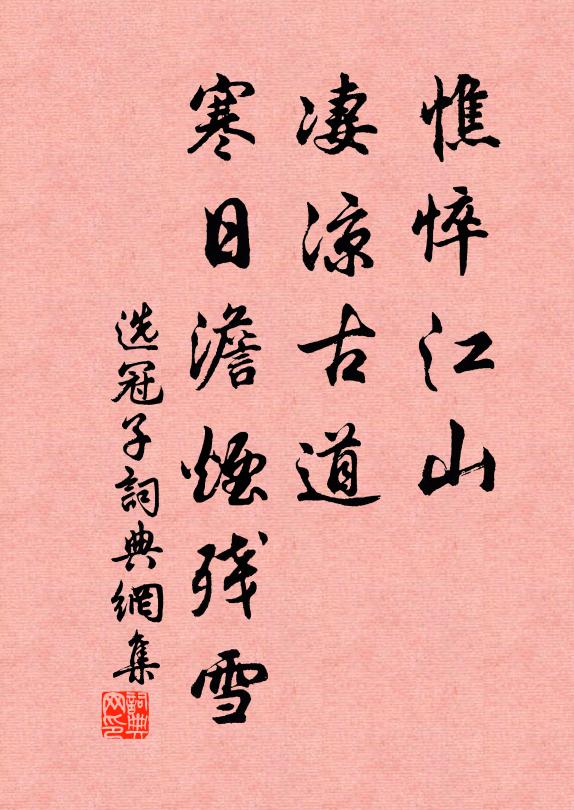 憔悴江山
凄涼古道
寒日澹煙残雪
选冠子詞典網集
詞典
网印